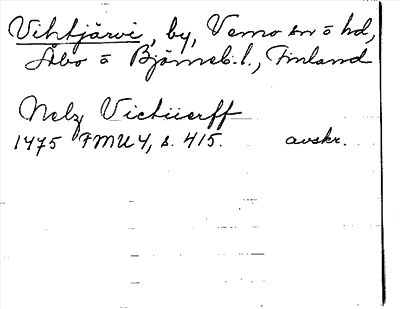 Vihtjärvi, by, Vemo sn o hd,
Åbo o Björneb. l., Finland
Nelz Victiierff
1475 FMU 4, s. 415. avskr.